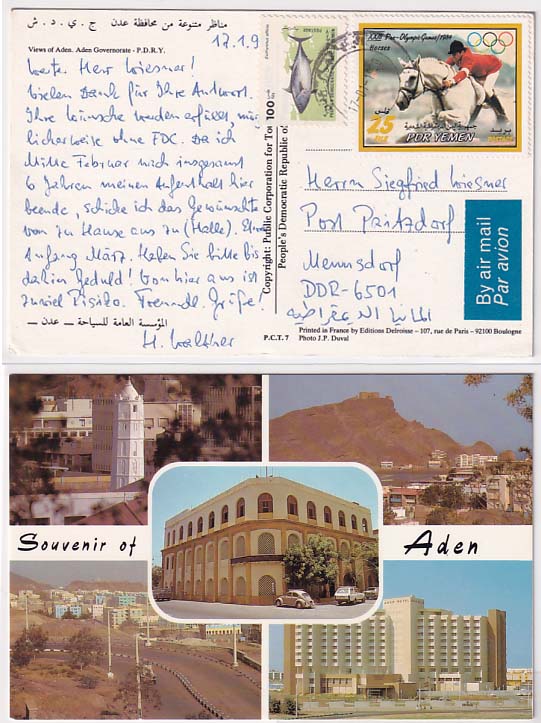 مناظر متنوعة من محافظة عدن ج . ي . د . ش
Views of Aden. Aden Governorate - P.D.R.Y.
12.1.9
Werter Herr Wiesner!
Vielen Dank für Ihre Antwort.
Ihre Wünsche werden erfüllt, mög-
licherweise ohne FDC. Da ich
Mitte Februar nach insgesamt
6 Jahren meinen Aufenthalt hier
beende, schicke ich das Gewünschte
von zu Hause aus zu (Halle).
Anfang März. Haben Sie bitte bis
dahin Geduld! Von hier aus ist
zuviel Risiko. Freundl. Grüße!
H. Walther
المؤسسة العامة للسياحة – عدن –
P.C.T. 7
Copyright: Public Corporation for
People's Democratic Republic
100
XXIII Pre-Olympic Games/1984
Horses
25
فلس
FILS
PDR YEMEN
بريد
Herrn Siegfried Wiesner
Post Pritzdorf
Mennsdorf
DDR-6501
المانيا الديمقراطية
By air mail
Par avion
Printed in France by Editions Delroisse – 107, rue de Paris – 92100 Boulogne
Photo J.P. Duval
Souvenir of Aden